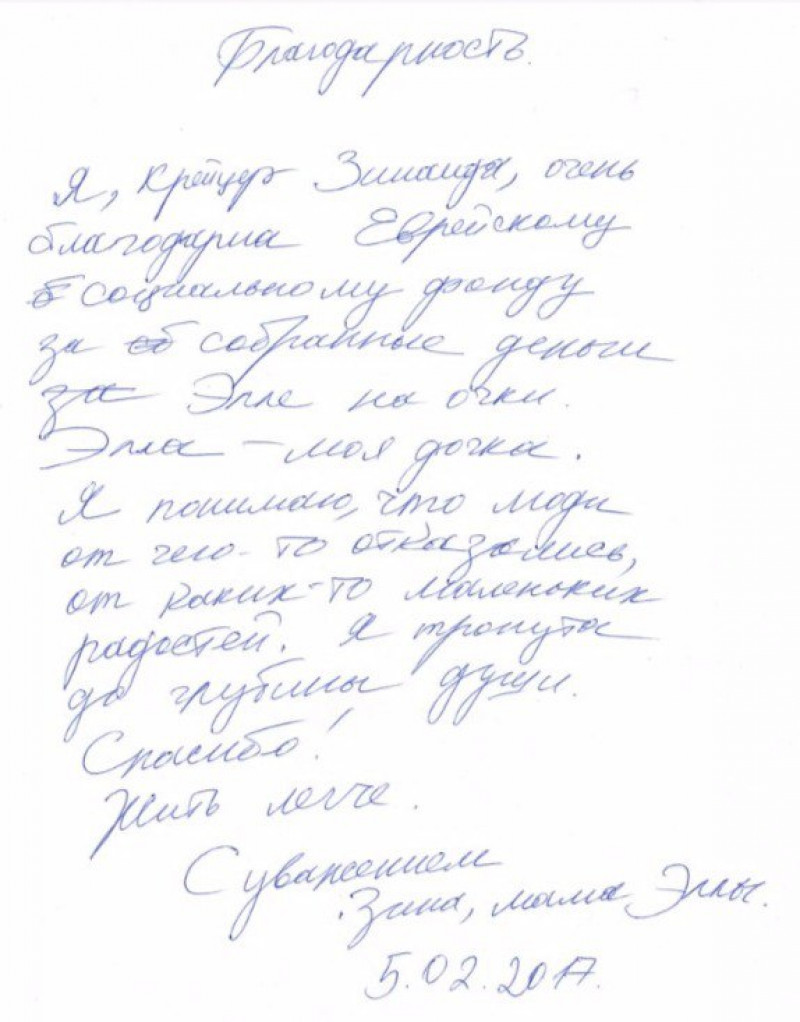 Благодарность.
Я, Крейцер Зинаида, очень
благодарна Еврейскому
социальному фонду
за собранные деньги
Элле на очки.
Элла – моя дочка.
Я понимаю, что люди
от чего-то отказались,
от каких-то маленьких
радостей. Я тронута
до глубины души.
Спасибо!
Жить легче.
С уважением
Зина, мама Эллы.
5.02.2017.